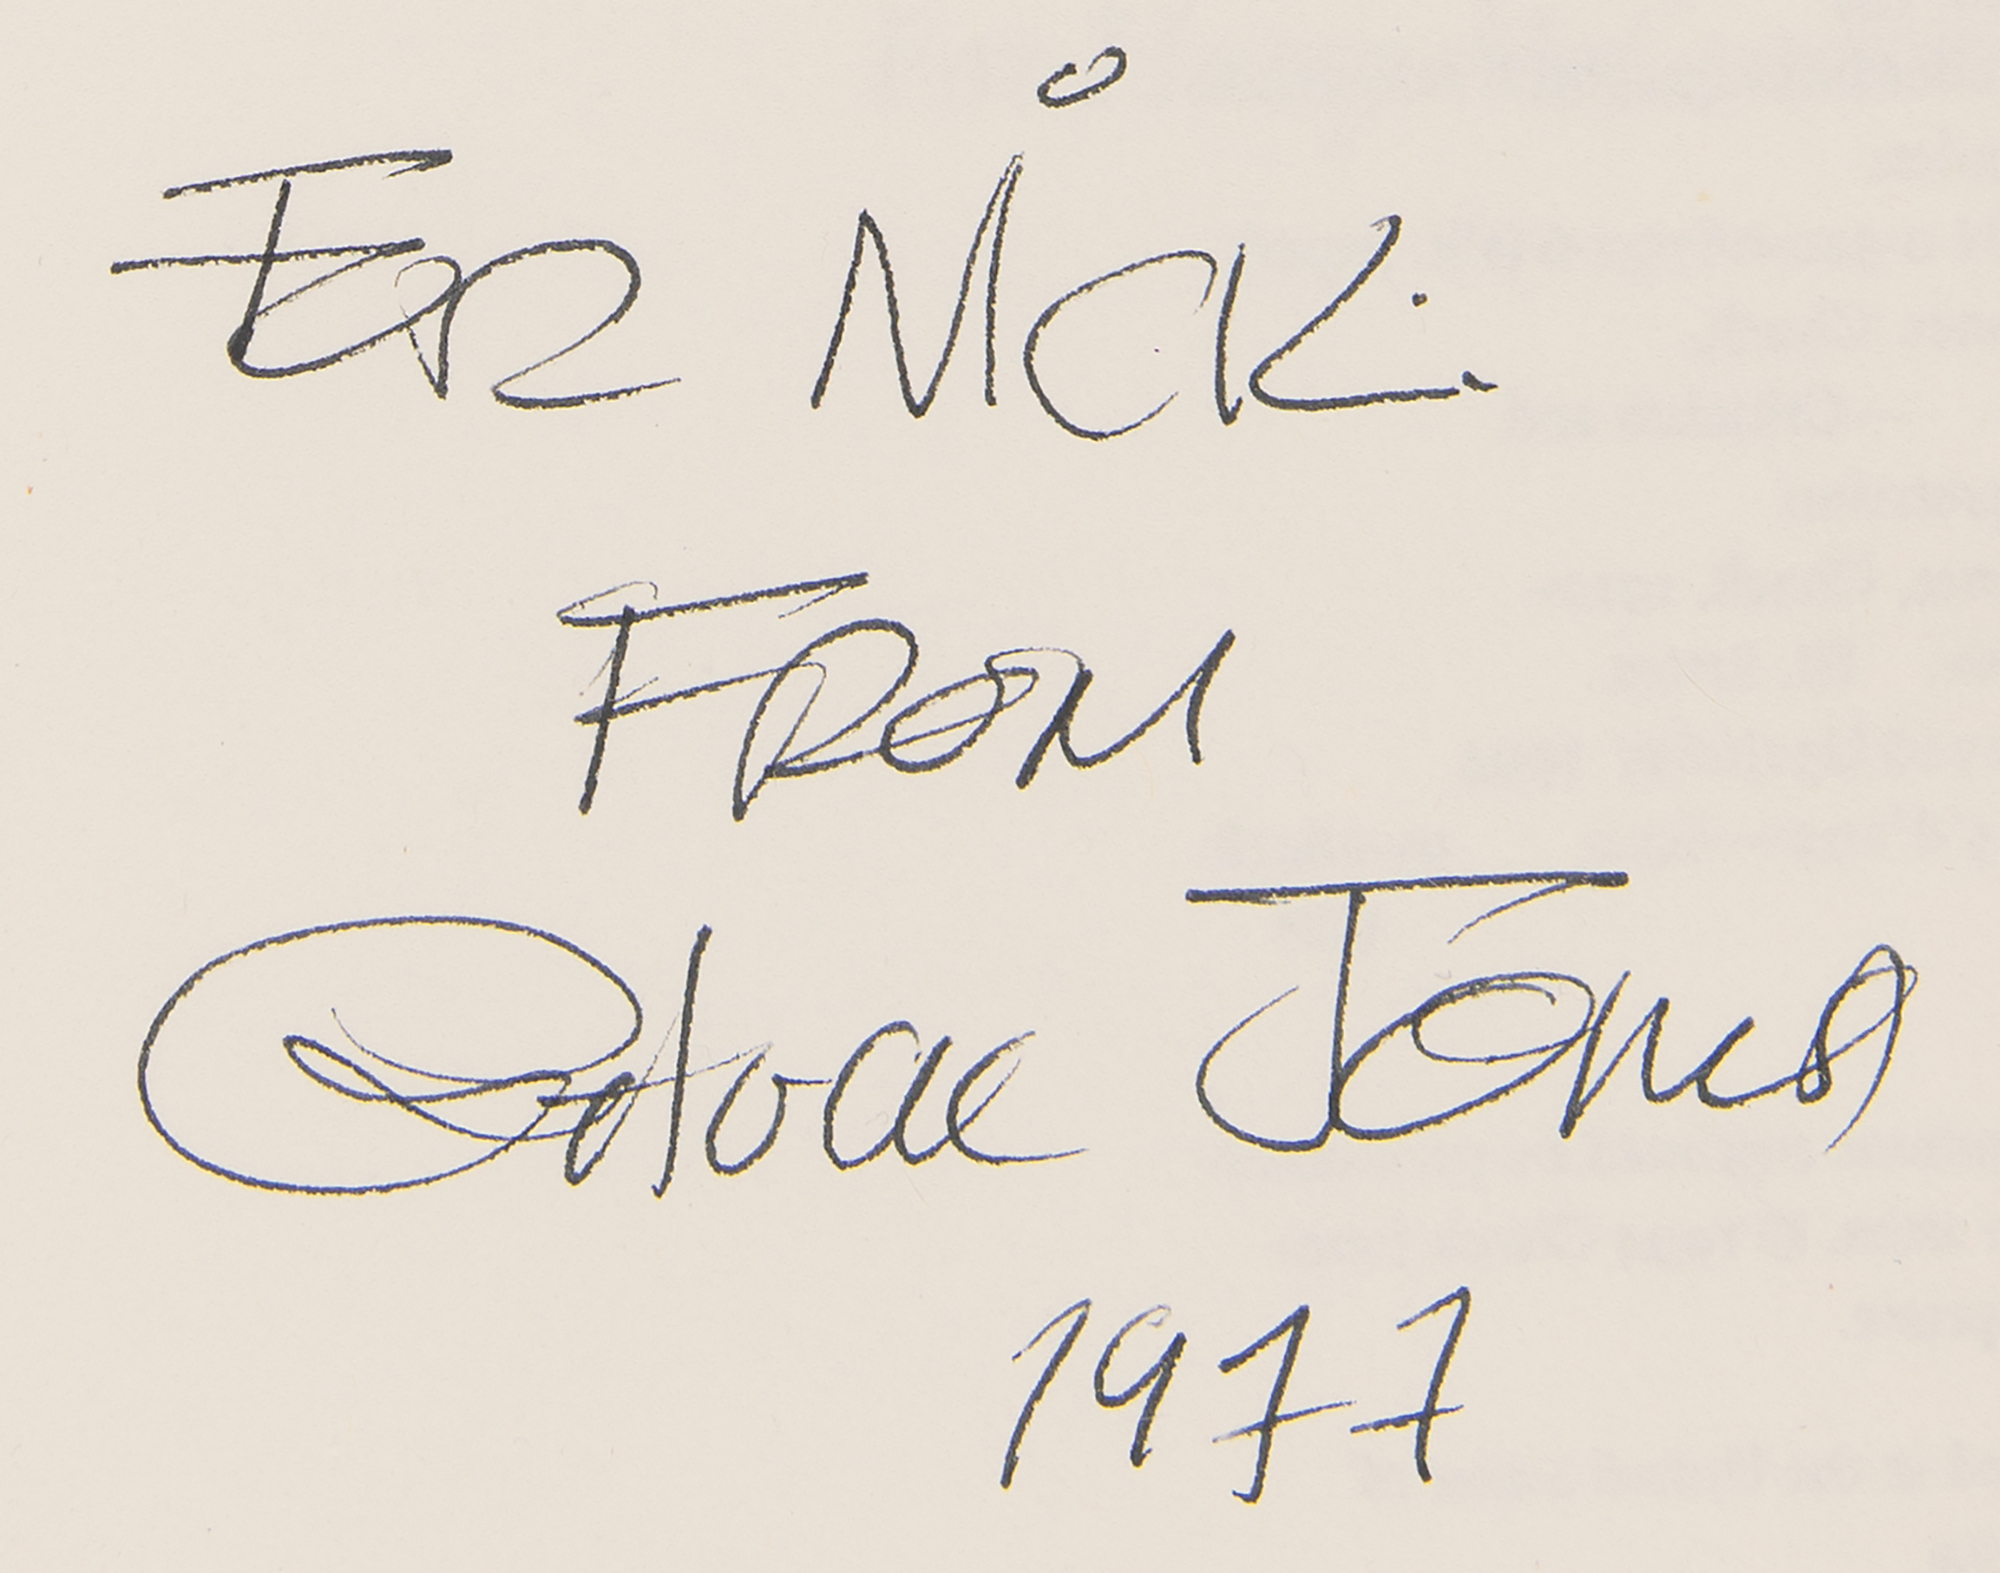 FOR NICK.
FROM
Jones
1977